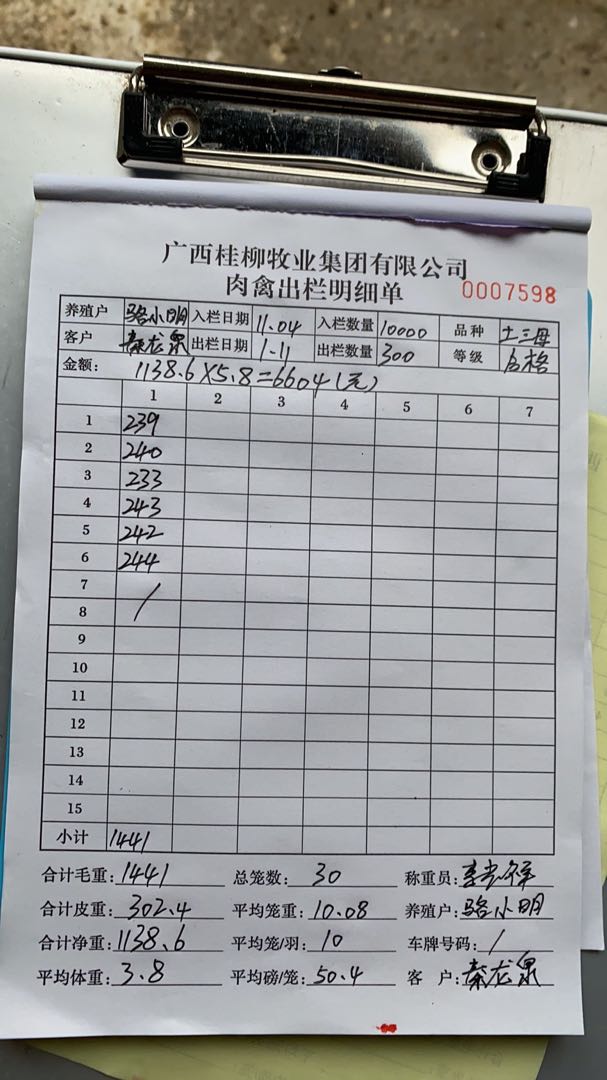 广西桂柳牧业集团有限公司
肉禽出栏明细单 0007598
养殖户 骆小明 入栏日期 11.04 入栏数量 10000 品种 土三母
客户 秦龙泉 出栏日期 1-11 出栏数量 300 等级 合格
金额: 1138.6×5.8=6604(元)
1 2 3 4 5 6 7
1 239
2 240
3 233
4 243
5 242
6 244
7
8 /
9
10
11
12
13
14
15
小计 1441
合计毛重: 1441 总笼数: 30 称重员:
合计皮重: 302.4 平均笼重: 10.08 养殖户: 骆小明
合计净重: 1138.6 平均笼/羽: 10 车牌号码: /
平均体重: 3.8 平均磅/笼: 50.4 客户: 秦龙泉